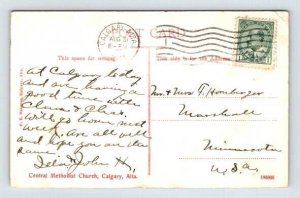 POST CARD
CALGARY
AUG 5
This space for writing
This side is for the Address.
at Calgary today
and are having a
good time with
Clara & Chas.
will go home next
week. Are all well
and hope you are the
same.
Della & John H.
Mr & Mrs T. Honberger
Marshall
Minnesota
U.S.A.
Central Methodist Church, Calgary, Alta.